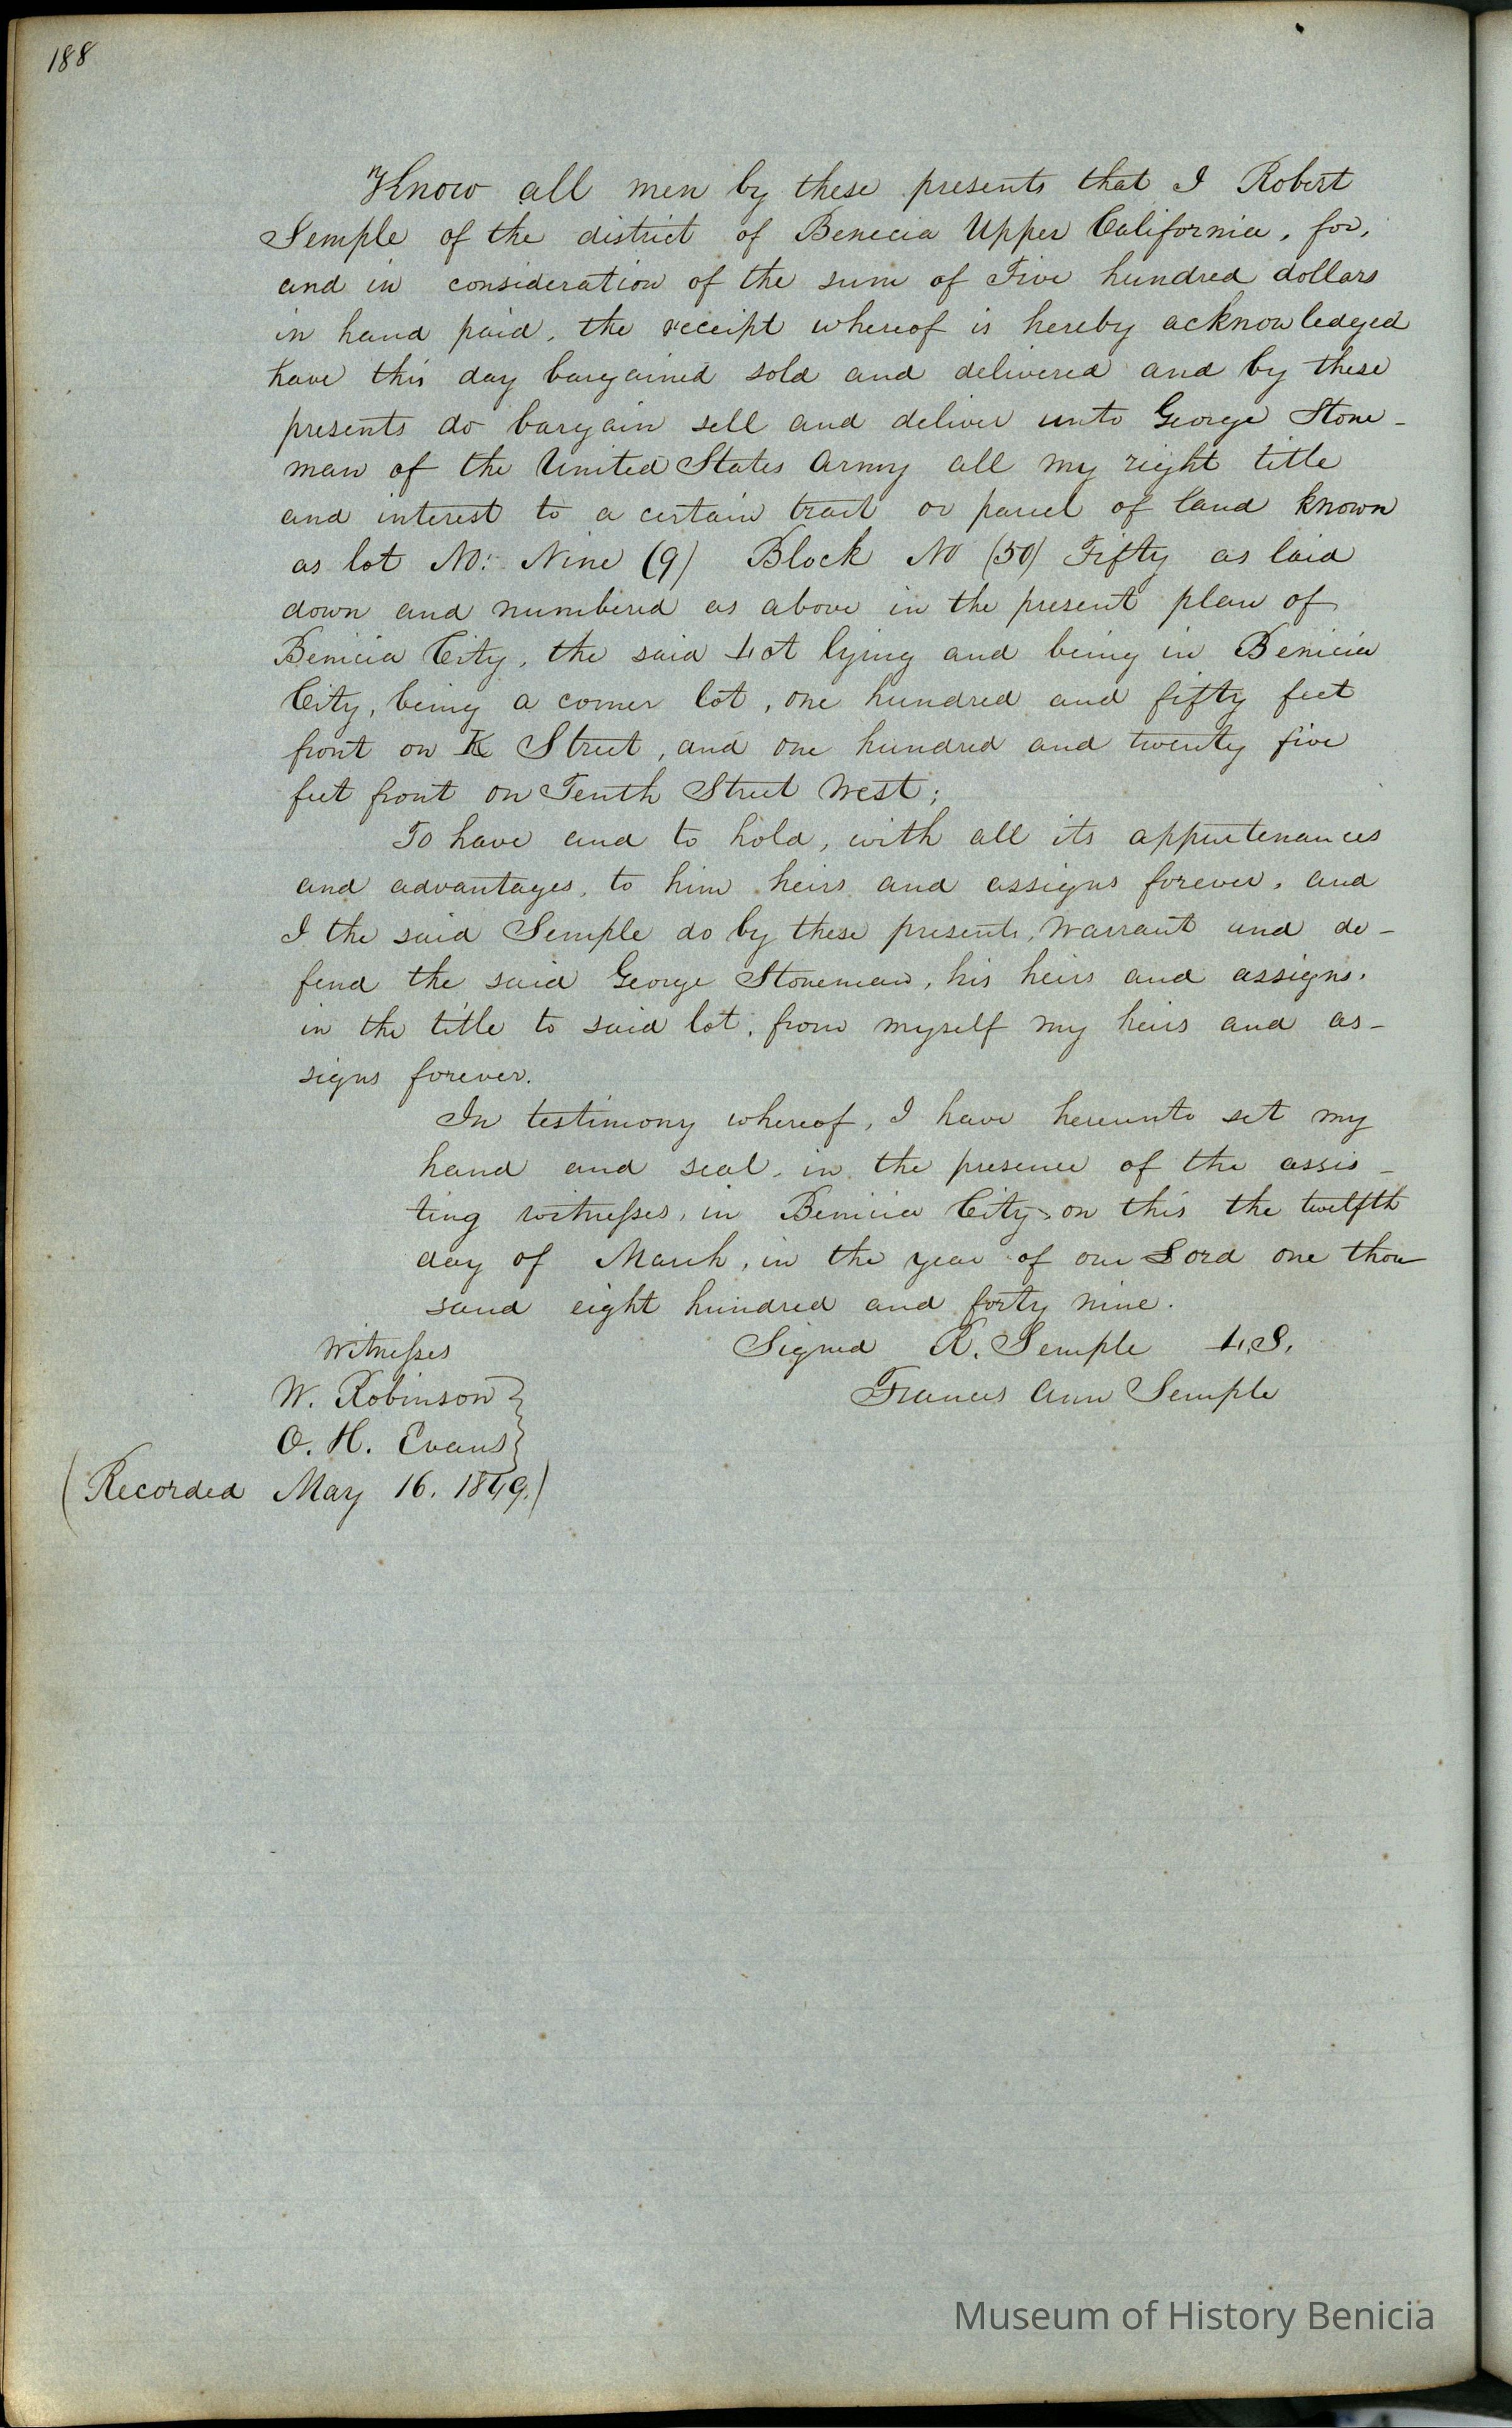 188
Know all men by these presents that I Robert
Semple of the district of Benicia Upper California, for,
and in consideration of the sum of Five hundred dollars
in hand paid, the receipt whereof is hereby acknowledged
have this day bargained sold and delivered and by these
presents do bargain sell and deliver unto George Stone-
man of the United States Army all my right title
and interest to a certain tract or parcel of land known
as lot No: Nine (9) Block No (50) Fifty as laid
down and numbered as above in the present plan of
Benicia City, the said Lot lying and being in Benicia
City, being a corner lot, one hundred and fifty feet
front on K Street, and one hundred and twenty five
feet front on Tenth Street West;
To have and to hold, with all its appurtenances
and advantages, to him heirs and assigns forever, and
I the said Semple do by these presents, Warrant and de-
fend the said George Stoneman, his heirs and assigns.
in the title to said lot, from myself my heirs and as-
signs forever.
In testimony whereof, I have hereunto set my
hand and seal, in the presence of the assis-
ting witnesses, in Benicia City, on this the twelfth
day of March, in the year of our Lord one thou-
sand eight hundred and forty nine.
Witnesses Signed R. Semple L.S.
W. Robinson } Frances Ann Semple
O. H. Evans }
(Recorded May 16. 1849.)
Museum of History Benicia